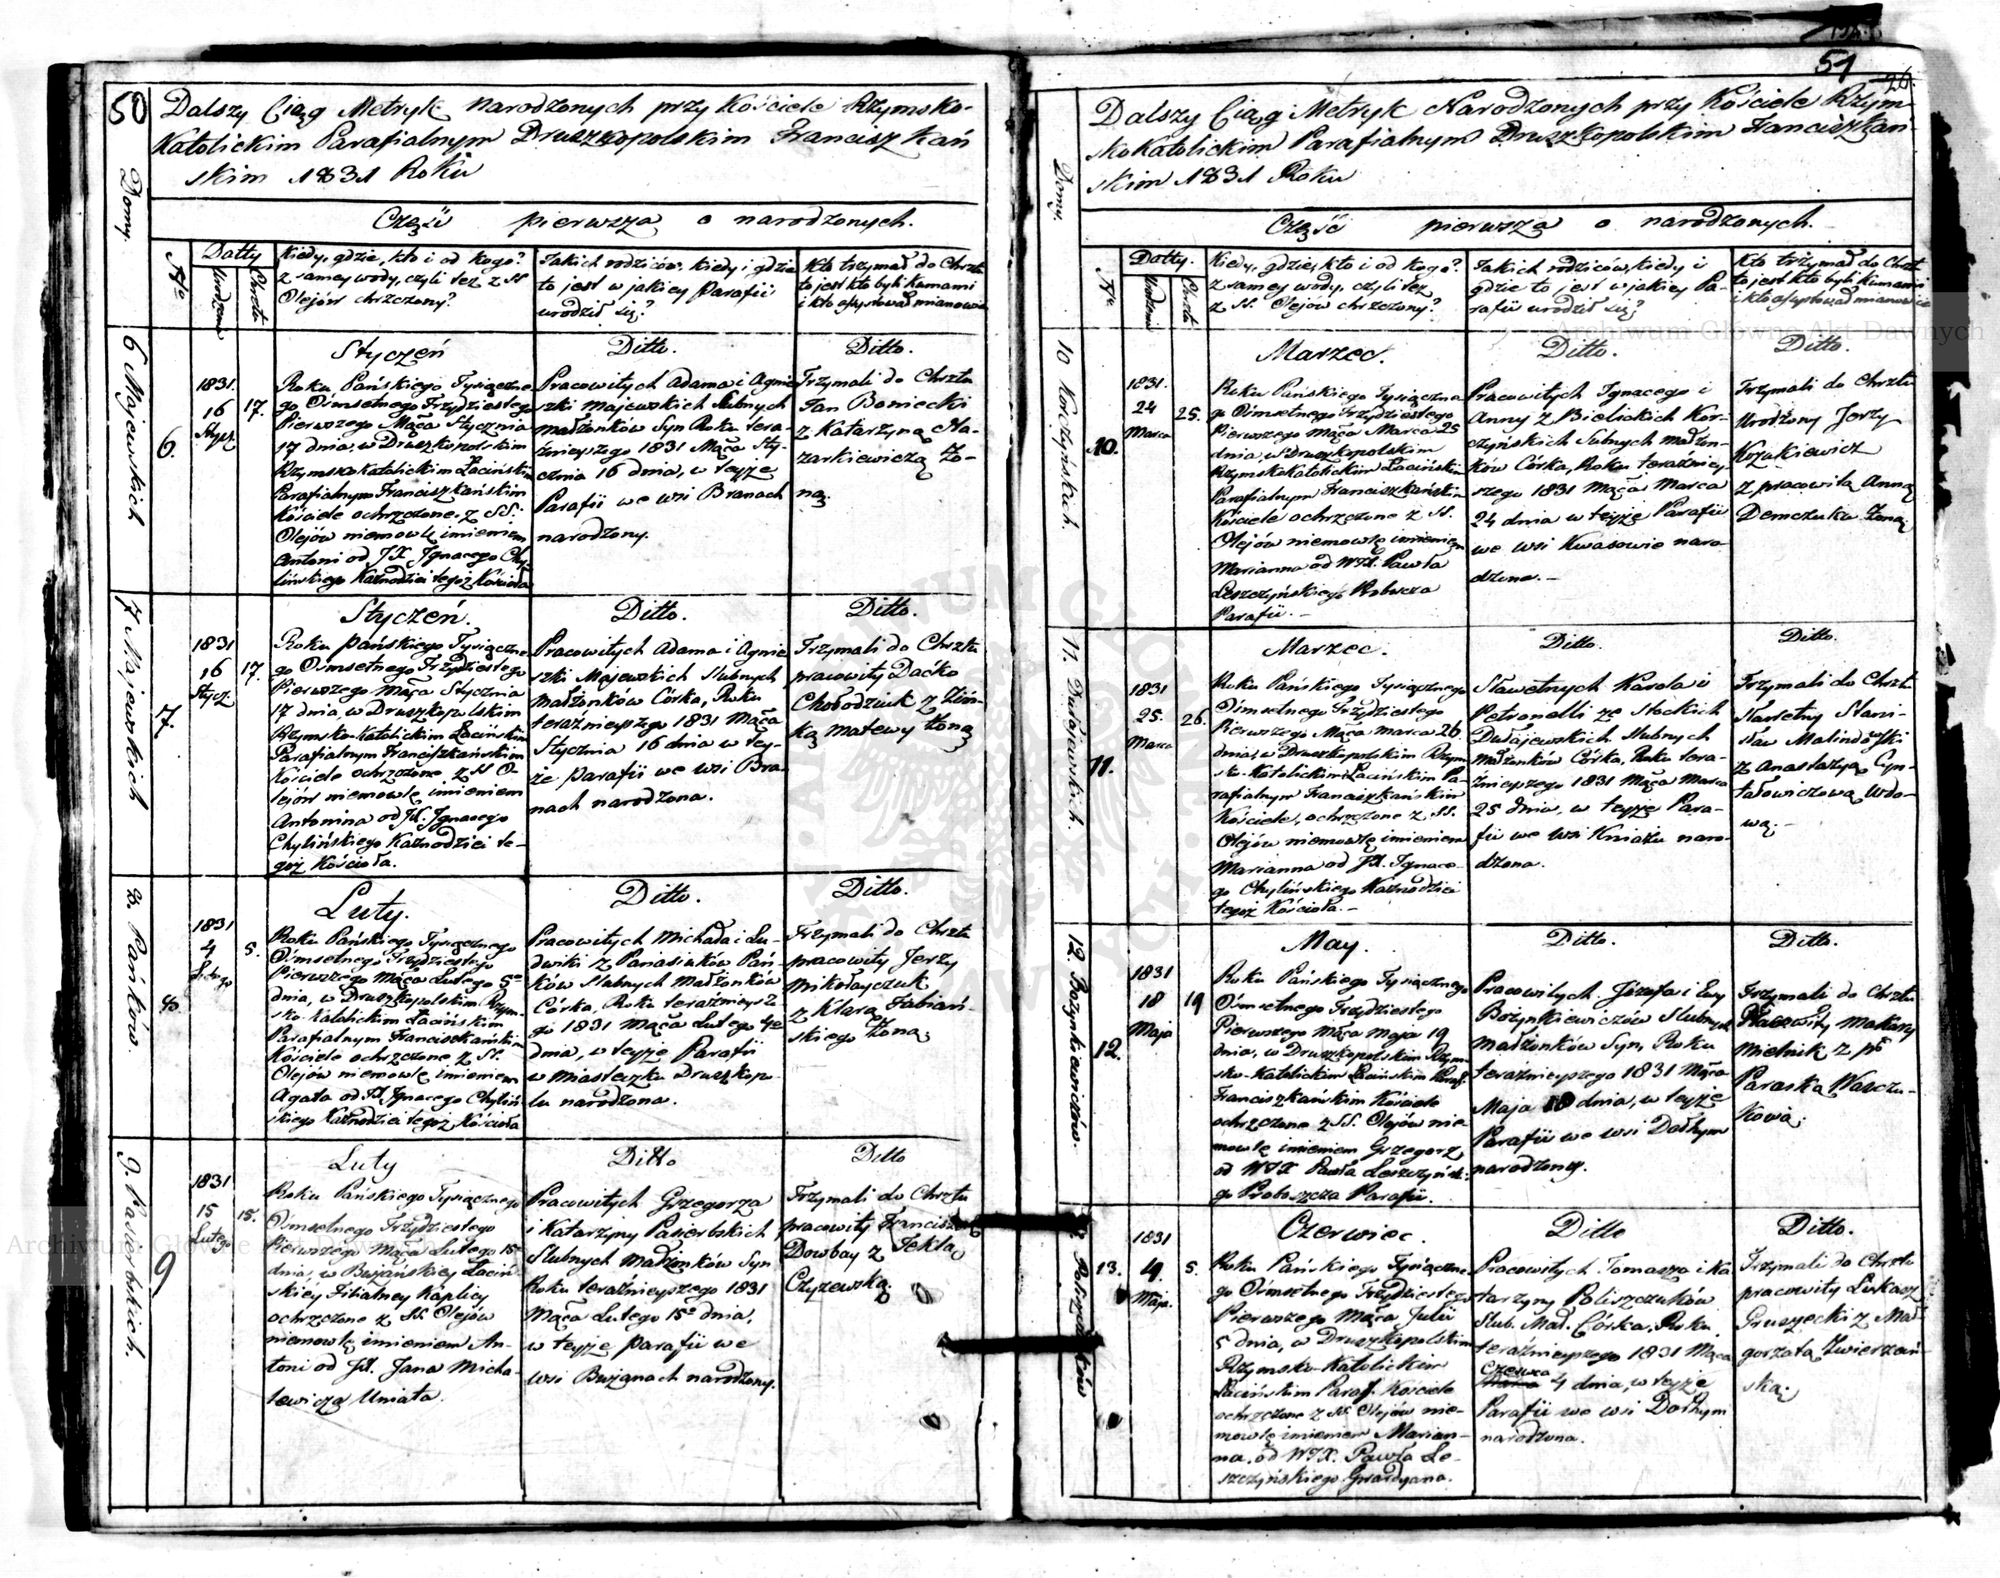 50
Dalszy Ciąg Metryk narodzonych przy Kościele Rzymsko-
Katolickim Parafialnym Druszkopolskim Franciszkań
skim 1831 Roku
Domy.
Część pierwsza o narodzonych.
Nro
Datty
Urodzenia
Chrztu
Kiedy, gdzie, kto i od kogo?
z samey wody, czyli też z SS
Olejów chrzczony?
Jakich rodziców, kiedy i gdzie
to jest w jakiey Parafii
urodził się?
Kto trzymał do Chrztu
to jest kto byli kumami
i kto assystował mianowicie
6 Majewskich
6.
1831.
16
Stycz.
17.
Styczeń
Roku Pańskiego Tysiączne
go Osmsetnego Trzydziestego
Pierwszego Mąca Stycznia
17 dnia, w Druszkopolskim
Rzymskokatolickim Łacińskim
Parafialnym Franciszkańskim
Kościele ochrzczone z SS.
Olejów niemowlę imieniem
Antoni od JX. Ignacego Chy
lińskiego Kaznodziei tegoż Kościoła
Ditto.
Pracowitych Adama i Agnie
szki Majewskich Slubnych
małżonków Syn Roku tera-
źnieyszego 1831 Mąca Sty-
cznia 16 dnia, w teyże
Parafii we wsi Branach
narodzony.
Ditto.
Trzymali do Chrztu
Jan Boniecki
z Katarzyną Na-
zarkiewiczą żo-
ną.
7 Majewskich
7.
1831
16
Stycz.
17.
Styczeń.
Roku Pańskiego Tysiączne
go Osmsetnego Trzydziestego
Pierwszego Mąca Stycznia
17 dnia, w Druszkopolskim
Rzymsko-katolickim Łacińskim
Parafialnym Franciszkańskim
Kościele ochrzczone z SS O-
lejów niemowlę imieniem
Antonina od JX. Ignacego
Chylińskiego Kaznodziei te-
goż Kościoła.
Ditto.
Pracowitych Adama i Agnie
szki Majewskich Slubnych
małżonków Córka, Roku
teraźnieyszego 1831 Mąca
Stycznia 16 dnia w tey-
że Parafii we wsi Bra-
nach narodzona.
Ditto.
Trzymali do Chrztu
pracowity Daćko
Chołodziuk z
ką Matewy żoną
8. Pańków.
8.
1831
4
Lutego
5.
Luty.
Roku Pańskiego Tysiącznego
Osmsetnego Trzydziestego
Pierwszego Mąca Lutego 5o
dnia, w Druszkopolskim Rzym-
sko-katolickim Łacińskim
Parafialnym Franciszkańskim
Kościele ochrzczone z SS.
Olejów niemowlę imieniem
Agata od JX. Ignacego Chyliń-
skiego Kaznodziei tegoż Kościoła
Ditto.
Pracowitych Michała i Lu-
dwiki z Panasiuków Pań-
ków Slubnych Małżonków
Córka, Roku teraźnieysze
go 1831 Mąca Lutego 4o
dnia, w teyże Parafii
w miasteczku Druszkopo-
lu narodzona.
Ditto.
Trzymali do Chrztu
pracowity Jerzy
Mikołayczuk
z Klarą Fabiań-
skiego żoną.
9. Pasierbskich.
9
1831
15
Lutego
15.
Luty
Roku Pańskiego Tysiącznego
Osmsetnego Trzydziestego
Pierwszego Mąca Lutego 15o
dnia, w Bużańskiey Łaciń
skiey Filialney Kaplicy
ochrzczone z SS. Olejów
niemowlę imieniem An-
toni od JX. Jana Micha-
lewicza Uniata.
Ditto
Pracowitych Grzegorza
i Katarzyny Pasierbskich
Slubnych Małżonków Syn
Roku teraźnieyszego 1831
Mąca Lutego 15o dnia,
w teyże parafii we
wsi Bużanach narodzony.
Ditto
Trzymali do Chrztu
pracowity Francisz
Dowbay z Teklą
Czyżewską
51
26.
Dalszy Ciąg Metryk Narodzonych przy Kościele Rzym
skokatolickim Parafialnym Druszkopolskim Franciszkań-
skim 1831 Roku
Domy.
Część pierwsza o narodzonych.
Nro
Datty.
Urodzenia
Chrztu
Kiedy, gdzie, kto i od kogo?
z samey wody, czyli też
z SS. Olejów chrzczony?
Jakich rodziców, kiedy i
gdzie to jest w jakiey Pa-
rafii urodził się?
Kto trzymał do Chrztu
to jest kto byli kumami
i kto assystował mianowicie
10 Korczyńskich.
10.
1831.
24
Marca
25.
Marzec.
Roku Pańskiego Tysiączne
go Osmsetnego Trzydziestego
Pierwszego Mąca Marca 25
dnia, w Druszkopolskim
Rzymskokatolickim Łacińskim
Parafialnym Franciszkańskim
Kościele ochrzczone z SS.
Olejów niemowlę imieniem
Marianna od WJX. Pawła
Leszczyńskiego Proboszcza
Parafii.-
Ditto.
Pracowitych Ignacego i
Anny z Bielickich Kor-
czyńskich Slubnych Małżon-
ków Córka, Roku teraźniey
szego 1831 Mąca Marca
24 dnia w teyże Parafii
we wsi Kwasowie naro
dzona.-
Ditto.
Trzymali do Chrztu
Urodzony Jerzy
Kozakiewicz
z pracowitą Anną
Demczuka żoną
11. Dułajewskich.
11.
1831
25.
Marca
26.
Marzec.
Roku Pańskiego Tysiącznego
Osmsetnego Trzydziestego
Pierwszego Mąca Marca 26.
dnia, w Druszkopolskim Rzym
sko-Katolickim Łacińskim Pa-
rafialnym Franciszkańskim
Kościele, ochrzczone z SS.
Olejów niemowlę imieniem
Marianna od JX. Ignace-
go Chylińskiego Kaznodziei
tegoż Kościoła.-
Ditto.
Sławetnych Karola i
Petronelli ze Stockich
Dułajewskich Slubnych
Małżonków Córka, Roku tera-
źnieyszego 1831 Mąca Marca
25 dnia, w teyże Para-
fii we wsi Kniażu naro-
dzona.
Ditto.
Trzymali do Chrztu
Sławetny Stani-
sław Malinowski
z Anastazyą Cyn-
tałowiczową Wdo-
wą.-
12. Bożynkiewiczów.
12.
1831
18
Maja
19
May.
Roku Pańskiego Tysiącznego
Osmsetnego Trzydziestego
Pierwszego Mąca Maja 19
dnia, w Druszkopolskim Rzym
sko-Katolickim Łacińskim Paraf.
Franciszkańskim Kościele
ochrzczone z SS. Olejów nie
mowlę imieniem Grzegorz,
od WJX Pawła Leszczyńskie-
go Proboszcza Parafii.
Ditto.
Pracowitych Józefa i Ewy
Bożynkiewiczów Slubnych
małżonków Syn, Roku
teraźnieyszego 1831 Mąca
Maja 18 dnia, w teyże
Parafii we wsi Dołhym
narodzony.
Ditto.
Trzymali do Chrztu
Pracowity Makary
Mielnik z
Paraską Waszczu-
kową.
Poliszczuków
13.
1831
4
Maja.
5.
Czerwiec.
Roku Pańskiego Tysiączne
go Osmsetnego Trzydziestego
Pierwszego Mąca Julii
5 dnia, w Druszkopolskim
Rzymsko-Katolickim
Łacińskim Paraf. Kościele
ochrzczone z SS. Olejów nie-
mowlę imieniem Marian-
na, od WJX. Pawła Le-
szczyńskiego Gwardyana.
Ditto
Pracowitych Tomasza i Ka
tarzyny Poliszczuków
Slub. Mał. Córka, Roku
teraźnieyszego 1831 Mąca
Czerwca 4 dnia, w teyże
Parafii we wsi Dołhym
narodzona.
Ditto.
Trzymali do Chrztu
pracowity Łukasz
Gruszecki z Mał
gorzatą Zwierzań-
ską.
Archiwum Główne Akt Dawnych